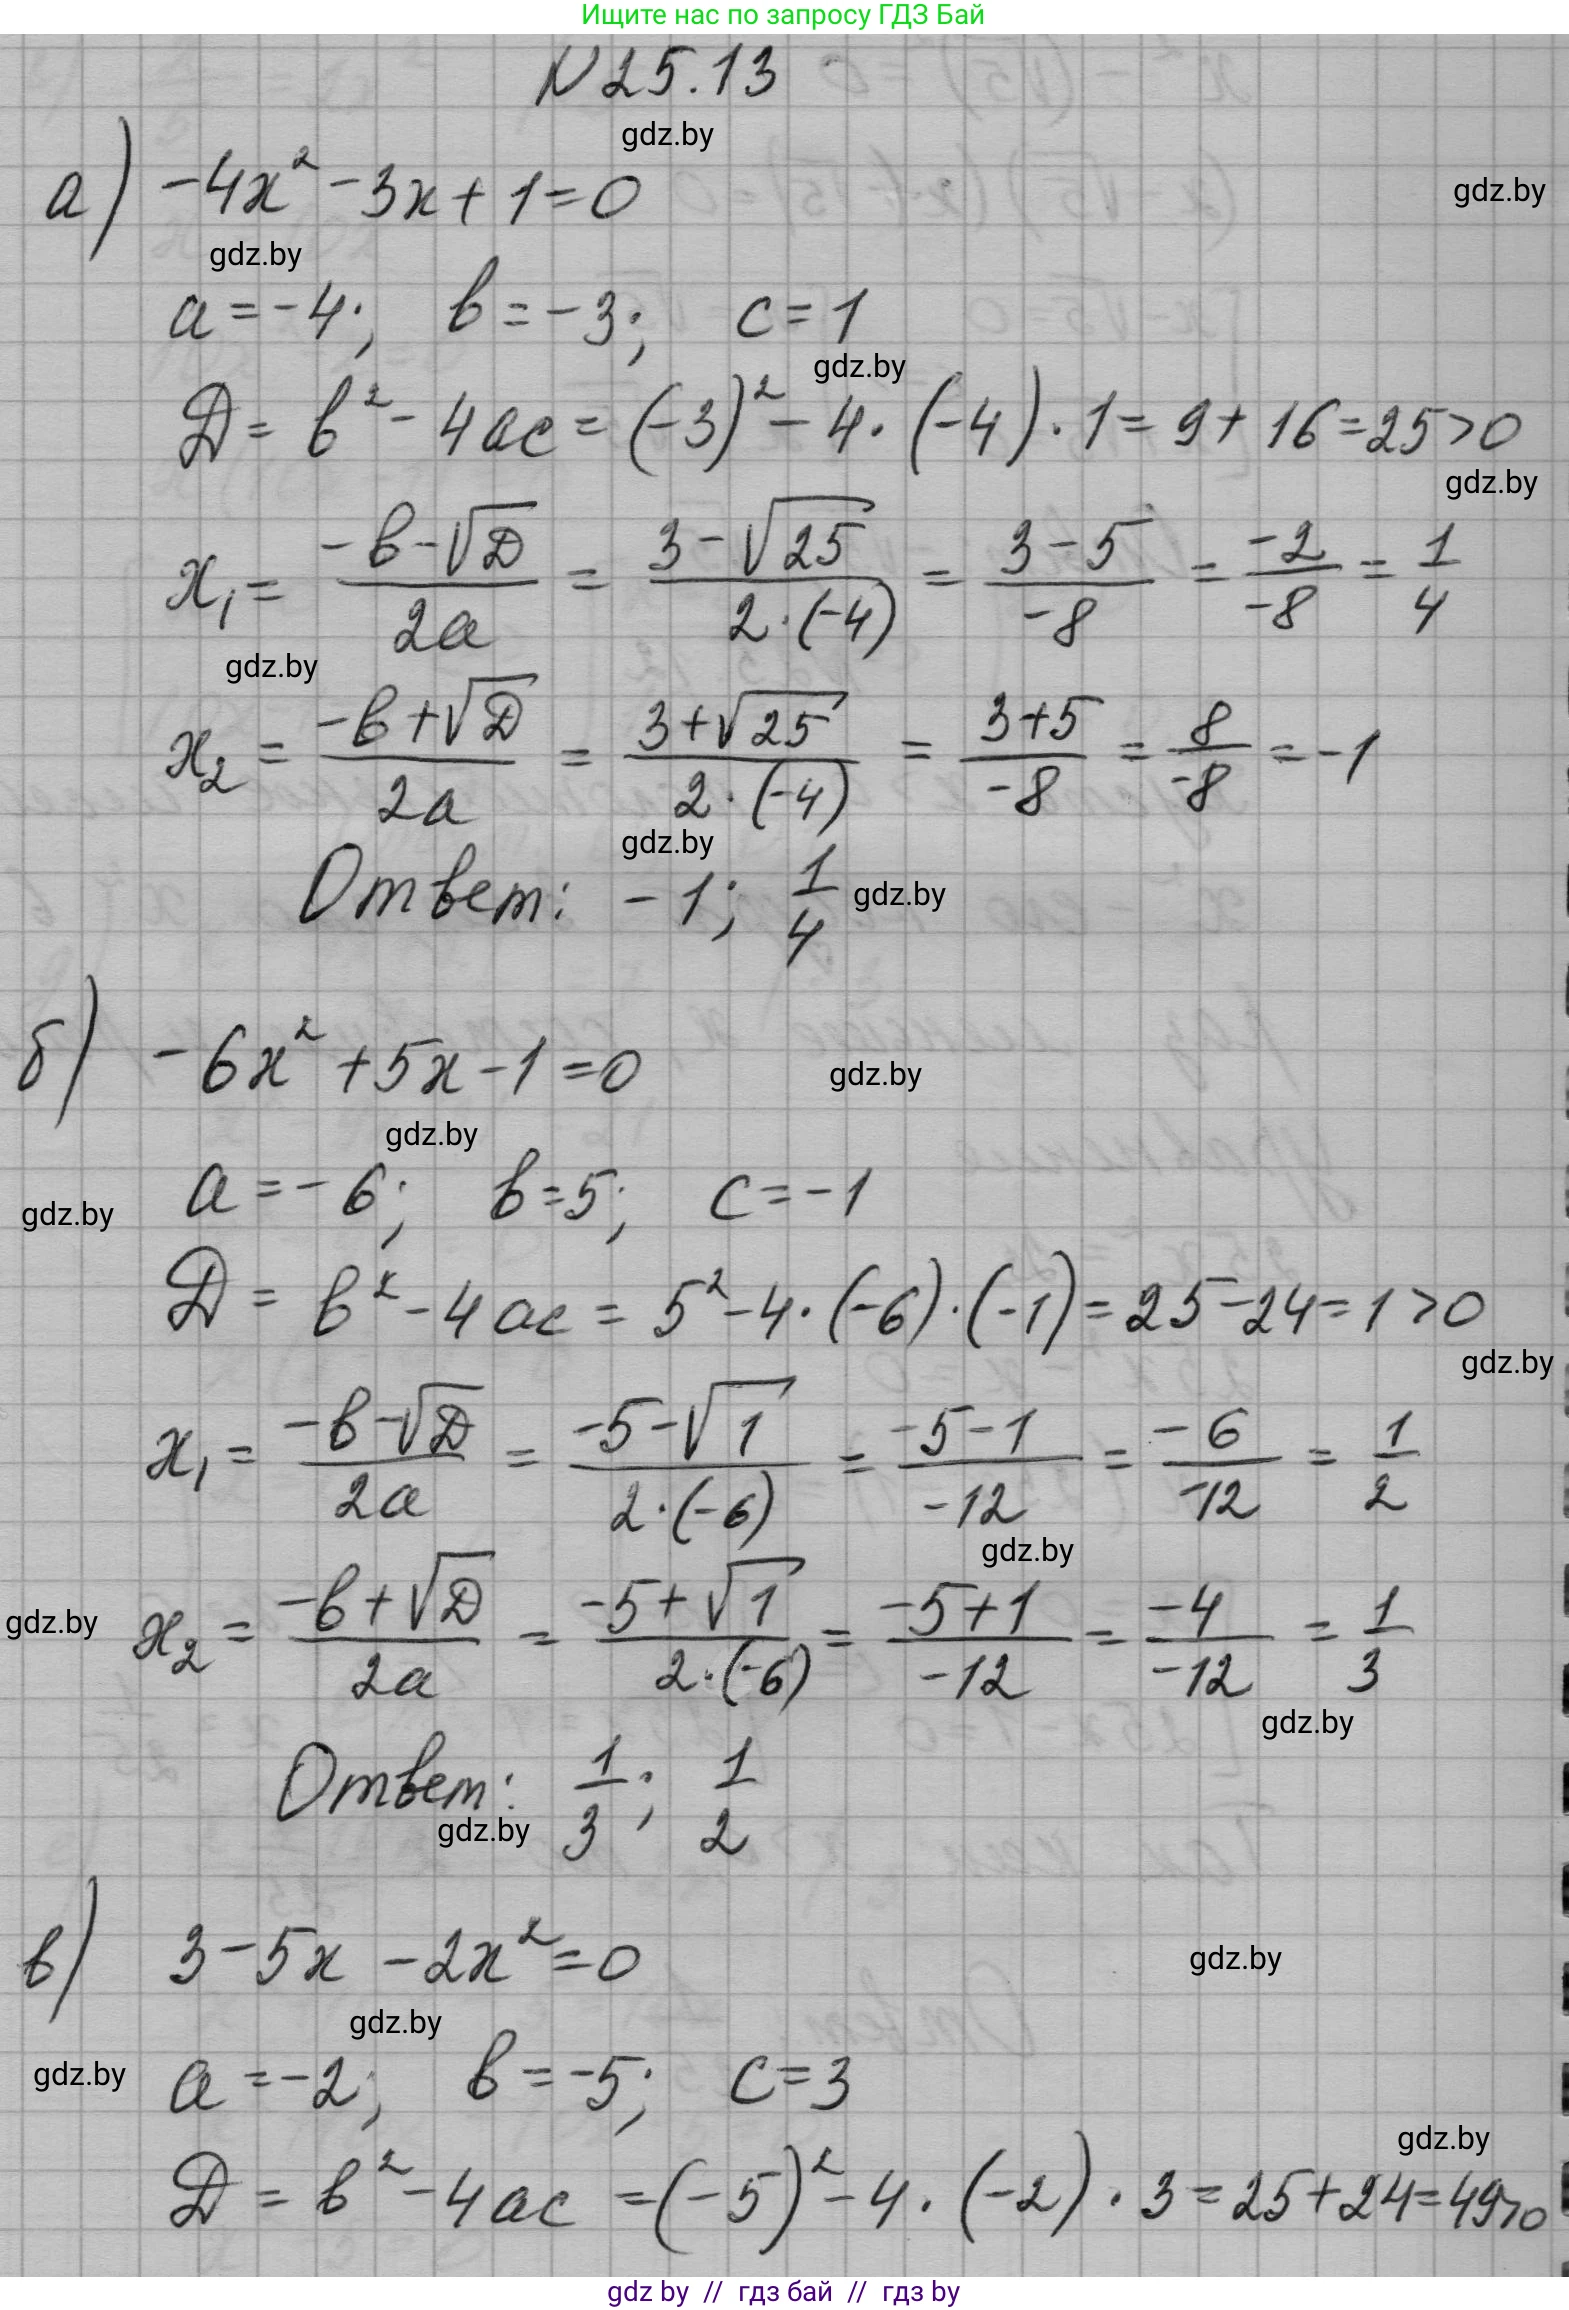 Ищите нас по запросу ГДЗ Бай
N 25.13
gdz.by
а) -4x² - 3x + 1 = 0
gdz.by
gdz.by
a = -4; b = -3; c = 1
gdz.by
D = b² - 4ac = (-3)² - 4 · (-4) · 1 = 9 + 16 = 25 > 0
gdz.by
x₁ = (-b - √D)/(2a) = (3 - √25)/(2 · (-4)) = (3 - 5)/(-8) = (-2)/(-8) = 1/4
gdz.by
x₂ = (-b + √D)/(2a) = (3 + √25)/(2 · (-4)) = (3 + 5)/(-8) = 8/(-8) = -1
gdz.by
Ответ: -1; 1/4
gdz.by
б) -6x² + 5x - 1 = 0
gdz.by
gdz.by
a = -6; b = 5; c = -1
gdz.by
D = b² - 4ac = 5² - 4 · (-6) · (-1) = 25 - 24 = 1 > 0
gdz.by
x₁ = (-b - √D)/(2a) = (-5 - √1)/(2 · (-6)) = (-5 - 1)/(-12) = (-6)/(-12) = 1/2
gdz.by
gdz.by
x₂ = (-b + √D)/(2a) = (-5 + √1)/(2 · (-6)) = (-5 + 1)/(-12) = (-4)/(-12) = 1/3
gdz.by
Ответ: 1/3; 1/2
gdz.by
в) 3 - 5x - 2x² = 0
gdz.by
gdz.by
gdz.by
a = -2; b = -5; c = 3
gdz.by
D = b² - 4ac = (-5)² - 4 · (-2) · 3 = 25 + 24 = 49 > 0
gdz by // гдз бай // гдз by